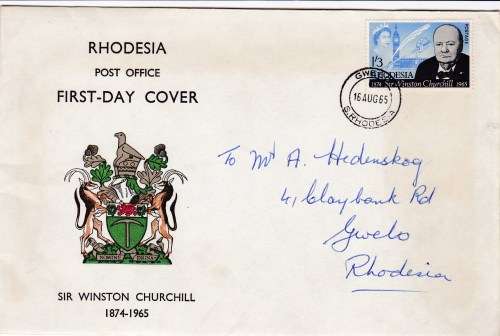 RHODESIA
POST OFFICE
FIRST-DAY COVER
SIT NOMINE DIGNA
SIR WINSTON CHURCHILL
1874-1965
POSTAGE
1/3
RHODESIA
1874 Sir Winston Churchill 1965
GWELO
16 AUG 65
S. RHODESIA
To Mr A. Hedenskog
41 Claybank Rd
Gwelo
Rhodesia